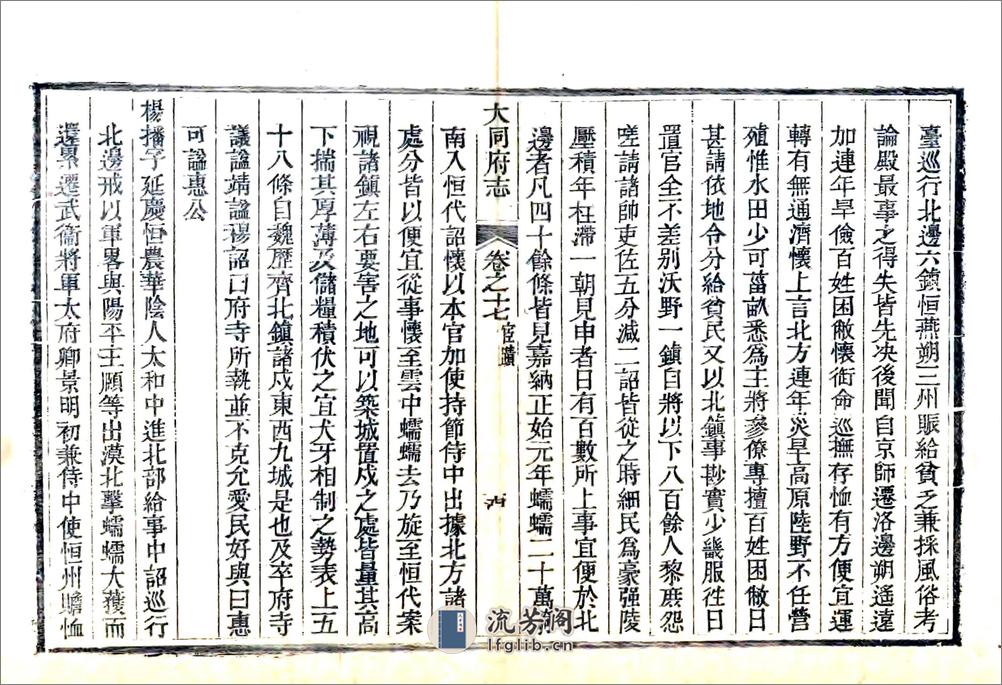 臺巡行北邊六鎮恒燕朔三州賑給貧乏兼採風俗考
論殿最事之得失皆先决後聞自京師遷洛邊朔遙遠
加連年旱儉百姓困敝懷銜命巡撫存恤有方便宜運
轉有無通濟懷上言北方連年災旱高原陸野不任營
殖惟水田少可菑畝悉爲主將參僚專擅百姓困敝日
甚請依地令分給貧民又以北鎮事勘實少畿服徃日
置官全不差别沃野一鎮自將以下八百餘人黎庶怨
嗟請諸帥吏佐五分減二詔皆從之時細民爲豪强陵
壓積年枉滯一朝見申者日有百數所上事宜便於北
邊者凡四十餘條皆見嘉納正始元年蠕蠕二十萬
大同府志
卷之十七
宦蹟
南入恒代詔懷以本官加使持節侍中出據北方諸
處分皆以便宜從事懷至雲中蠕蠕去乃旋至恒代案
視諸鎮左右要害之地可以築城置戍之處皆量其高
下揣其厚薄及儲糧積仗之宜犬牙相制之勢表上五
十八條自魏歷齊北鎮諸戍東西九城是也及卒府寺
議謚靖謚穆詔曰府寺所執並不克允愛民好與曰惠
可謚惠公
楊播字延慶恒農華陰人太和中進北部給事中詔巡行
北邊戒以軍畧與陽平王頤等出漠北擊蠕蠕大獲而
還累遷武衞將軍太府卿景明初兼侍中使恒州贍恤
流芳閣
lfglib.cn